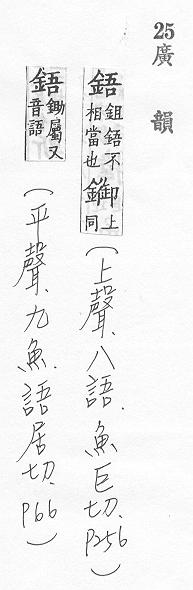 25廣韻
鋙鉏鋙不相當也鋤上同(上聲、八語、魚巨切、P256)
鋙鋤屬又音語(平聲、九魚、語居切、P66)